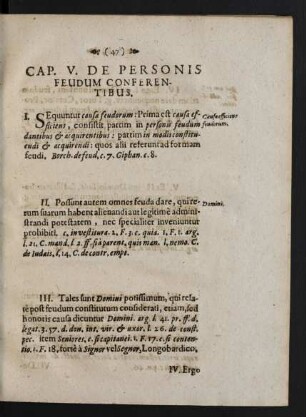 (47)
CAP. V. DE PERSONIS
FEUDUM CONFEREN-
TIBUS.
I. SEquuntur causa feudorum: Prima est causa ef-
ficiens, consistit partim in personis feudum
dantibus & acquirentibus: partim in modis constitu-
endi & acquirendi: quos alii referunt ad formam
feudi, Borch. de feud. c. 7. Giphan. c. 8.
Causa efficiens
feudorum.
II. Possunt autem omnes feuda dare, qui re-
rum suarum habent alienandi aut legitimè admini-
strandi potestatem, nec specialiter inveniuntur
prohibiti, c. investitura. 2. F. 3. c. quia. 1. F. 1. arg.
l. 21. C. mand. l. 2. ff. si à parent. quis man. l. nemo. C.
de Iudais, l. 14. C. de contr. empt.
Domini.
III. Tales sunt Domini potissimum, qui rela-
tè post feudum constitutum considerati, etiam, sed
honoris causa dicuntur Domini. arg. l. 41. pr. ff. d.
legat. 3. 57. d. don. int. vir. & uxor. l. 26. de const.
pec. item Seniores, c. si capitanei. 1. F. 17. c. si conten-
tio. 1. F. 18, fortè à Signor vel Segnor, Longobardico,
IV. Ergo